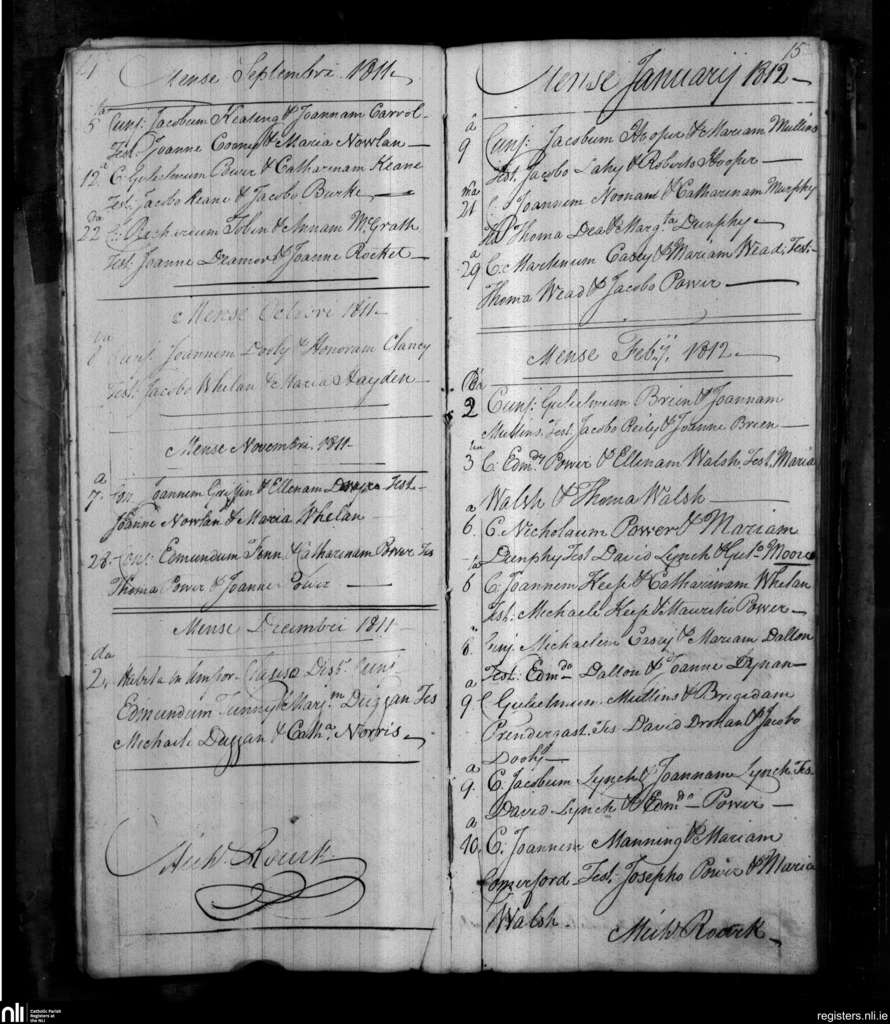 Mense Septembri 1811
ta
5 Cunj: Jacobum Keating & Joannam Carrol
Test. Joanne Coony & Maria Nowlan
a
12. C. Gulielmum Power & Catharinam Keane
Test. Jacobo Keane & Jacobo Burke
da
22 C: Tobin & Annam McGrath
Test. Joanne & Joanne Rocket
Mense Octobri 1811
Cunj. Joannem Dooly & Honoram Clancy
Test. Jacobo Whelan & Maria Hayden
Mense Novembri. 1811
a
7. Joannem Griffin & Ellenam Test.
Joanne Nowlan & Maria Whelan
28. Cunj: Edmundum & Catharinam Power Tes
Thoma Power & Joanne Power
Mense Decembri 1811
da
2. Habita in tempor. Clauso Disp. Cunj.
Edmundum & Marjm. Duggan Tes
Michaele Duggan & Catha. Norris
Michl. Rourk
15
Mense Januarij 1812
a
9 Cunj: Jacobum Hooper & Mariam Mullins
Test. Jacobo Lahy & Roberto Hooper
ma
21 C. Joannem Noonan & Catharinam Murphy
Thoma Dea & Margta Dunphy
a
29 C. Martinum Casey & Mariam Wead, Test.
Thoma Wead & Jacobo Power
Mense Feb'ij. 1812
da
2 Cunj: Gulielmum Brien & Joannam
Mullins, Test. Jacobo Reily & Joanne Brien
tia
3 C. Edmd. Power & Ellenam Walsh, Test. Maria
Walsh & Thoma Walsh
a
6. C. Nicholaum Power & Mariam
Dunphy Test David Lynch & Gulo. Moore
ta
6 C. Joannem Keep & Catharinam Whelan
Test. Michaele Keep & Mauritio Power
a
6. Cunj. Michaelem Casey & Mariam Dallon
Test. Edmdo. Dallon & Joanne Dynan
a
9. C Gulielmum Mullins & Brigidam
Prendergast. Tes David Drohan & Jacobo
Dooly
a
9. C. Jacobum Lynch & Joannam Lynch Tes.
David Lynch & Edmdo Power
a
10. C. Joannem Manning & Mariam
Comerford Test. Josepho Power & Maria
Walsh.
Michl Rourk
nli
Catholic Parish
Registers at
the NLI
registers.nli.ie